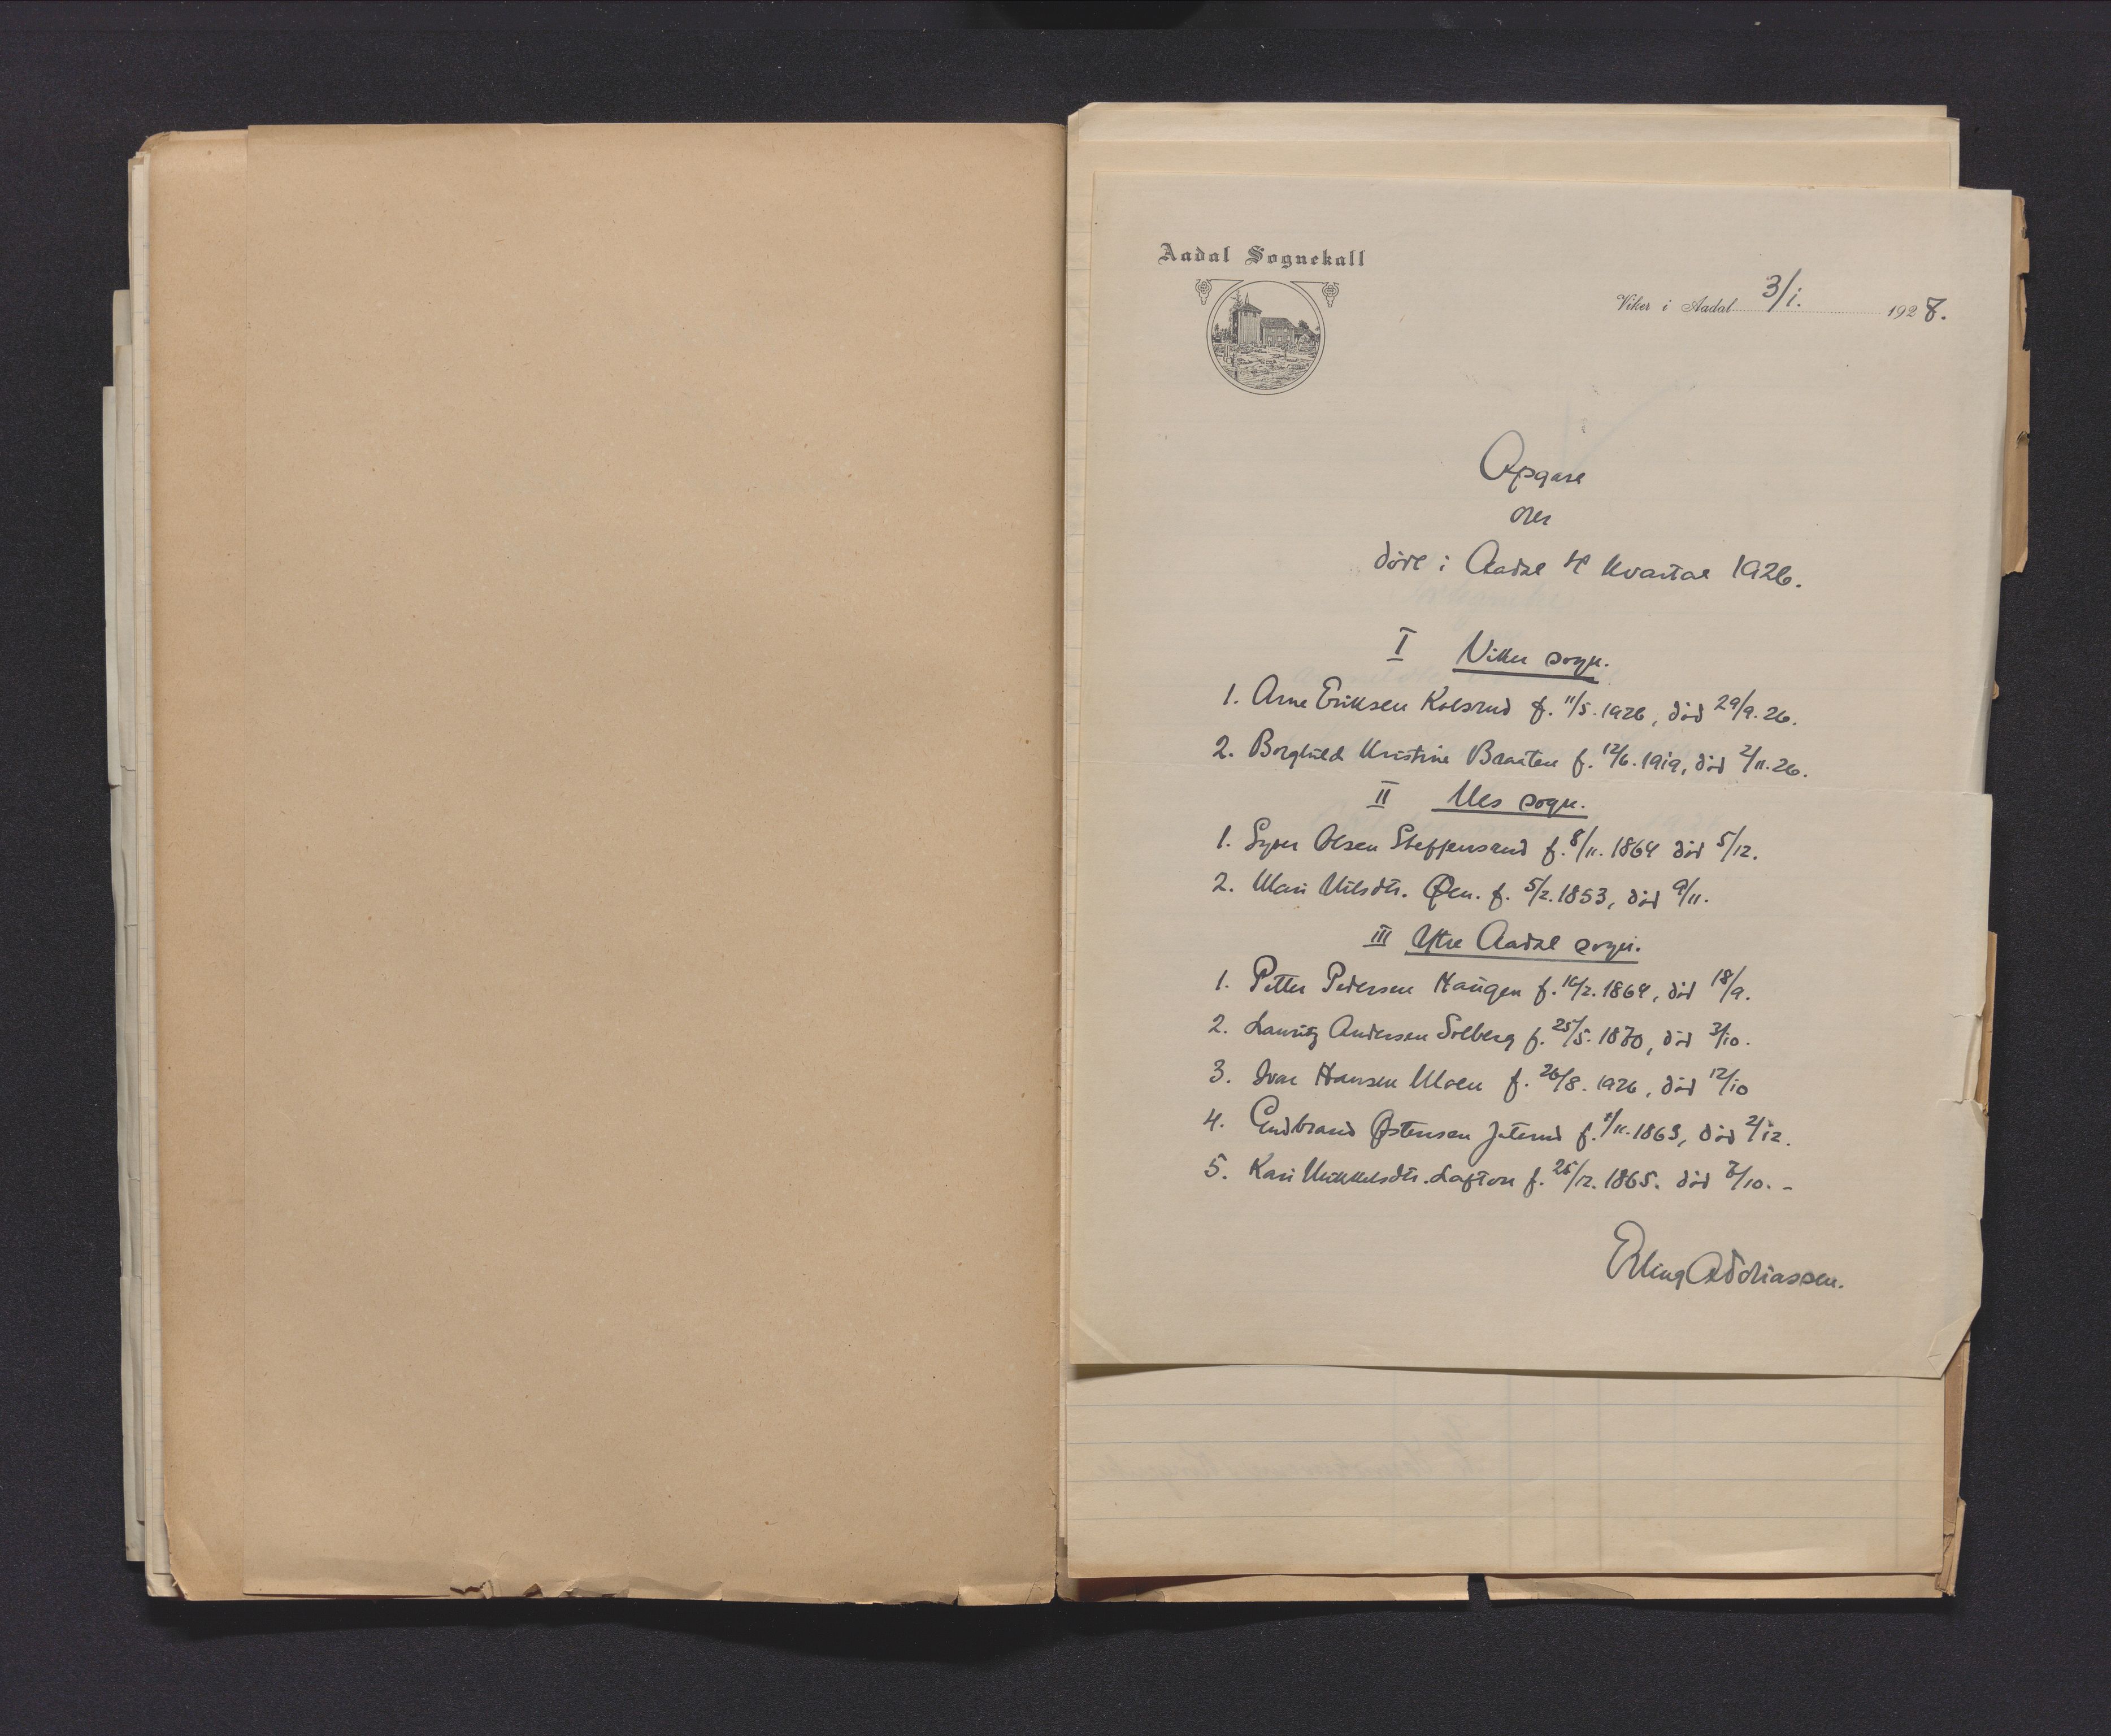 Aadal Sognekall
Viker i Aadal 3/1. 1927.
Opgave
over
døde i Aadal 4 kvartal 1926.
I Viker sogn.
1. Arne Eriksen Kolsrud f. 11/5. 1926, død 29/9. 26.
2. Borghild Kristine Braaten f. 12/6. 1919, død 2/11. 26.
II Nes sogn.
1. Syver Olsen Steffensrud f. 8/11. 1864 død 5/12.
2. Mari Nilsdtr. Øen. f. 5/2. 1853, død 9/11.
III Ytre Aadal sogn.
1. Petter Pedersen Haugen f. 1864, død 18/9.
2. Lauritz Andersen Solberg f. 25/5. 1870, død 3/10.
3. Ivar Hansen Moen f. 26/8. 1926, død 12/10
4. Gudbrand Østensen f. 1863, død 2/12.
5. Kari Mikkelsdtr. f. 25/12. 1865. død 7/10. -
Erling